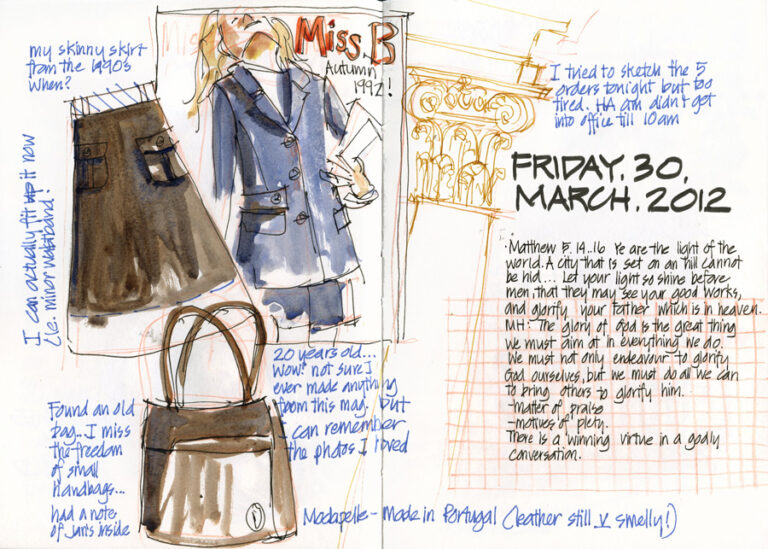 my skinny skirt
from the 1990s
When?
I can actually fit up it now
(ie. minor waistband!
Miss. B
Autumn
1992!
20 years old...
Wow! not sure I
ever made anything
from this mag. but
I can remember
the photos I loved
Found an old
bag... I miss
the freedom
of small
handbags...
had a note
of Jan's inside
Madapelle - made in Portugal (leather still v smelly!)
I tried to sketch the 5
orders tonight but too
tired. HA am didn't get
into office till 10am
FRIDAY. 30.
MARCH. 2012
· Matthew 5. 14..16 Ye are the light of the
world. A city that is set on an hill cannot
be hid... Let your light so shine before
men, that they may see your good works,
and glorify your father which is in heaven.
MH: The glory of God is the great thing
we must aim at in everything we do.
We must not only endeavour to glorify
God ourselves, but we must do all we can
to bring others to glorify him.
-matter of praise
-motives of piety.
There is a winning virtue in a godly
conversation.